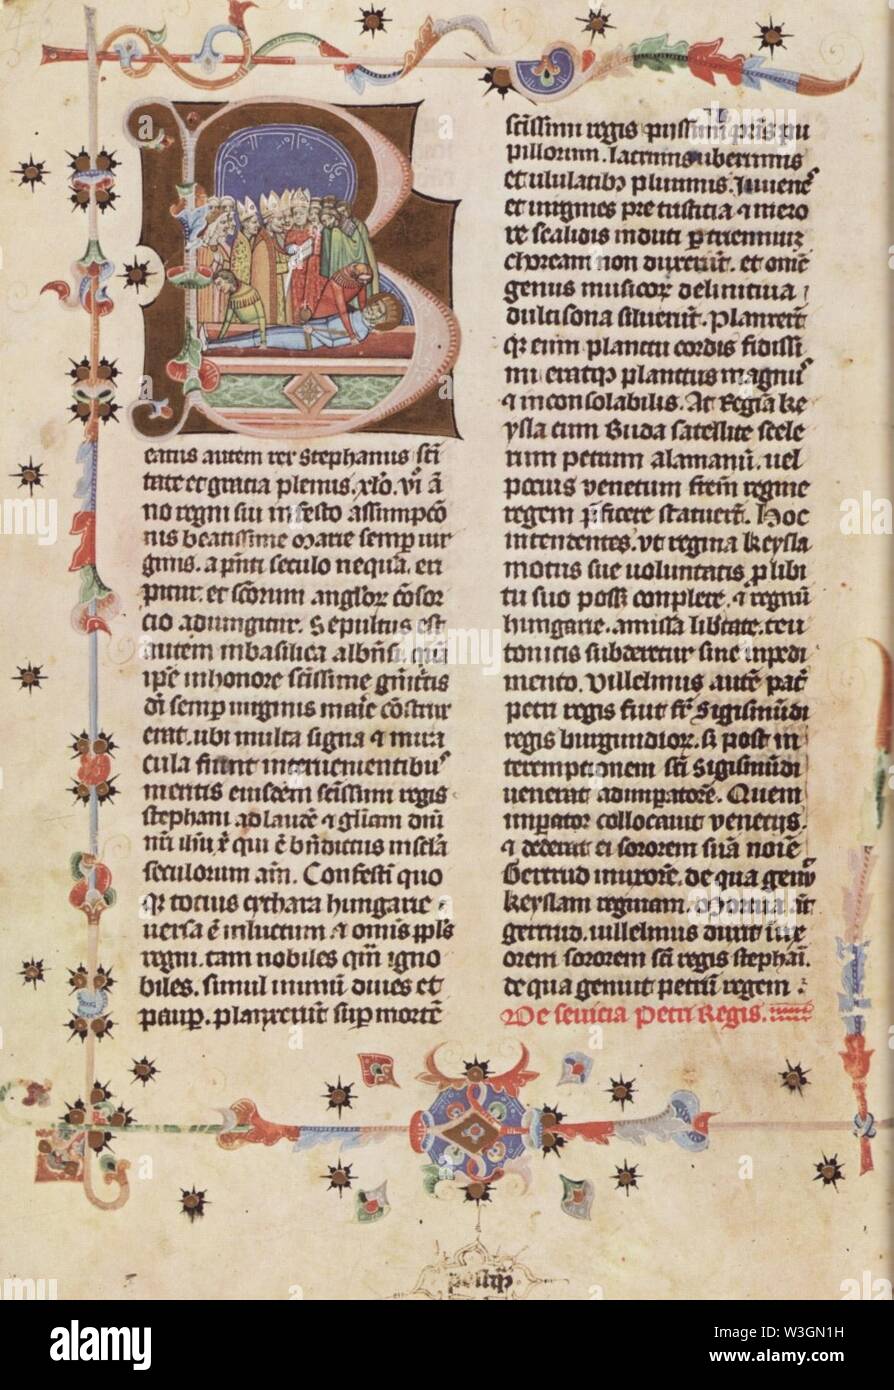 B
eatus autem rex Stephanus scī
tate et gratia plenus. xlo. vi ā
no regni sui in festo assumpcō
nis beatissime Marie semp vir
ginis. a pn̄ti seculo nequā. eri
pitur. et scōrum angłor cōsor
cio adiungitur. Sepultus est
autem in basilica albn̄si. quā
ipse in honore scīssime gn̄itcis
dī semp virginis maīe cōstrux
erat. ubi multa signa et mira
cula fiunt intervenientibus
meritis eiusdem scīssimi regis
stephani ad laudē et glīam dnī
nrī ihū xp̄ qui ē bn̄dictus in sclā
seculorum am̄. Confestī quo
qr tocius cythara hungarie
versa ē in luctum et omis ppłs
regni. tam nobiles qm̄ igno
biles. simul in unū dives et
paup. planxerūt sup mortē
scīssimi regis piissimi pris pu
pillorum. lacrimis uberrimis
et ululatibȝ plurimis. Iuvenes
et virgines pre tristicia et mero
re scalidis induti p trienniū
choream non duxerūt. et omē
genus musicor delinitiva
dulcisona siluerūt. Planxerūt
qr eum planctu cordis fidissi
mi eratqȝ planctus magnus
et inconsolabilis. At Regīa Ke
ysla cum Buda satellite scele
rum petrum alamanū. vel
pocius venetum frēm regine
regem pficere statuerūt. Hoc
intendentes. ut regina Keysla
motus sue voluntatis p libi
tu suo posȝ conplere. et regnū
hungarie. amissa libtate. teu
tonicis subderetur sine inpedi
mento. Villelmus autē patr
petri regis fuit fr̄ Sigismūdi
regis burgundior. sȝ post in
teremptionem scī Sigismūdi
venerat ad inpatorē. Quem
inpator collocavit venecijs.
et dederat ei sororem suā noīe
Gertrud in uxorē. de qua genuit
keyslam reginam. Mortua aūt
gertrud. villelmus duxit in ux
orem sororem scī regis stephāi.
de qua genuit petrū regem.
De sevicia Petri Regis.
alamy
alamy
W3GN1H
www.alamy.com